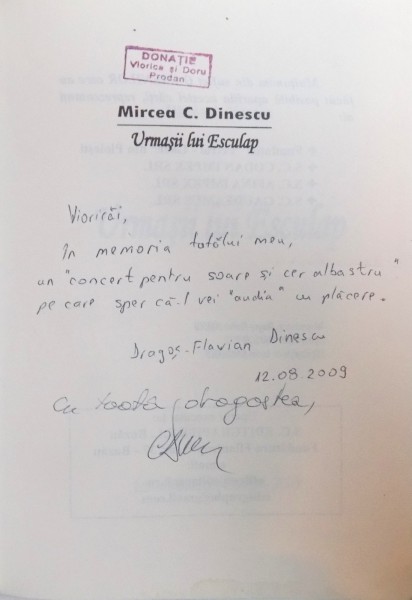 DONAȚIE
Viorica și Doru
Prodan
Mircea C. Dinescu
Urmașii lui Esculap
Vioricăi,
În memoria tatălui meu,
un "concert pentru soare și cer albastru"
pe care sper că-l vei "audia" cu plăcere.
Dragoș-Flavian Dinescu
12.08.2009
Cu toată dragostea,